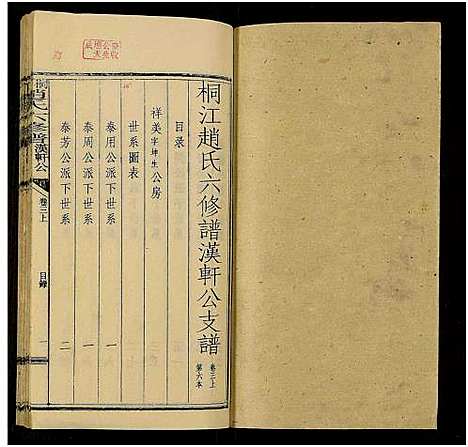 桐江趙氏六修譜漢軒公支譜 卷三上 第六本
目录
祥美字坤生公房
世系圖表
泰用公派下世系 一
泰周公派下世系 一
泰芳公派下世系 二
氏六修譜漢軒公 卷三上 目錄 一